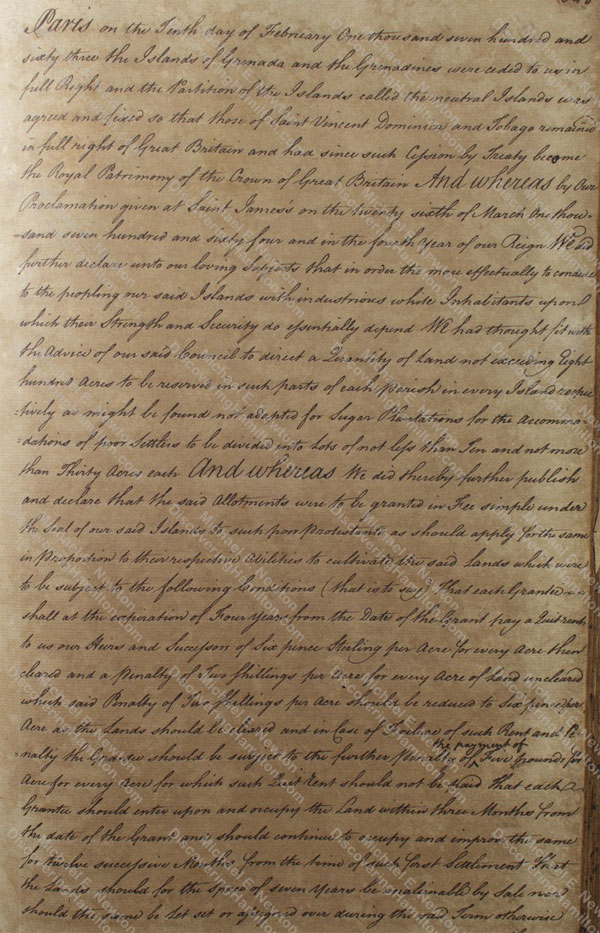 Paris on the Tenth day of February One thousand seven hundred and
sixty three the Islands of Grenada and the Grenadines were ceded to us in
full Right and the Partition of the Islands called the neutral Islands was
agreed and fixed so that those of Saint Vincent Dominica and Tobago remained
in full right of Great Britain and had since such Cession by Treaty become
the Royal Patrimony of the Crown of Great Britain And whereas by Our
Proclamation given at Saint James's on the twenty sixth of March One thou-
-sand seven hundred and sixty four and in the fourth Year of our Reign We did
further declare unto our loving Subjects that in order the more effectually to conduce
to the peopling our said Islands with industrious white Inhabitants upon
which their Strength and Security do essentially depend We had thought fit with
the Advice of our said Council to direct a Quantity of Land not exceeding Eight
hundred Acres to be reserved in such parts of each parish in every Island respec
-tively as might be found not adapted for Sugar Plantations for the Accommo-
-dations of poor Settlers to be divided into Lots of not less than Ten and not more
than Thirty Acres each And whereas We did thereby further publish
and declare that the said Allotments were to be granted in Fee simple under
the Seal of our said Islands to such poor Protestants as should apply for the same
in proportion to their respective abilities to cultivate the said Lands which were
to be subject to the following Conditions (that is to say) That each Grantee
shall at the expiration of Four Years from the Date of the Grant pay a Quit rent
to us our Heirs and Successors of Six pence Sterling per Acre for every Acre then
cleared and a Penalty of Two shillings per Acre for every Acre of Land uncleared
which said Penalty of Two shillings per Acre should be reduced to Six pence per
Acre as the Lands should be cleared and in Case of Failure of such Rent and Pe-
-nalty the Grantee should be subject to the further Penalty of the payment of Five pounds for
Acre for every Acre for which such Quit Rent should not be paid that each
Grantee should enter upon and occupy the Land within three Months from
the date of the Grant and should continue to occupy and improve the same
for twelve successive Months from the time of such first Settlement That
the Lands should for the Space of seven Years be unalienable by Sale nor
should the same be let set or assigned over during the said Term otherwise